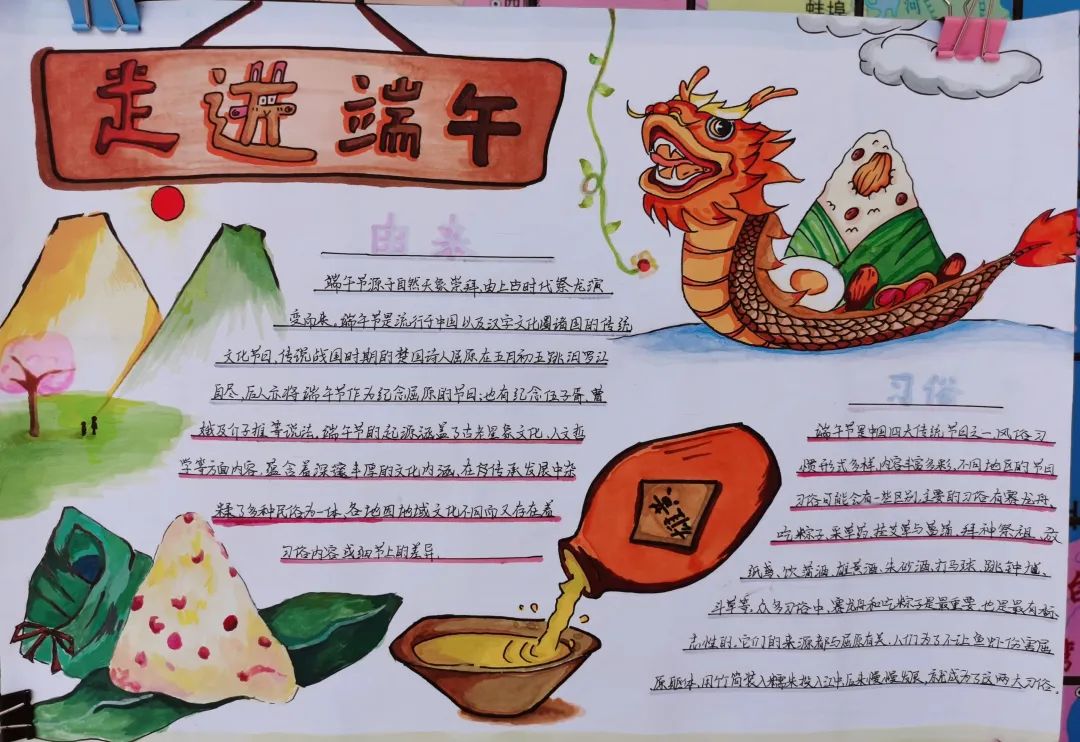 蚌埠
河
走进端午
由来
端午节源于自然天象崇拜由上古时代祭龙演
变而来，端午节是流行于中国以及汉字文化圈诸国的传统
文化节日，传说战国时期的楚国诗人屈原在五月初五跳汨罗江
自尽，后人亦将端午节作为纪念屈原的节日；也有纪念伍子胥、曹
娥及介子推等说法，端午节的起源涵盖了古老星象文化、人文哲
学等方面内容，蕴含着深邃丰厚的文化内涵，在传承发展中杂
糅了多种民俗为一体，各地因地域文化不同而又存在着
习俗内容或细节上的差异.
雄黄
习俗
端午节是中国四大传统节日之一风俗习
惯形式多样，内容丰富多彩，不同地区的节日
习俗可能会有一些区别，主要的习俗有赛龙舟、
吃粽子、采草药、挂艾草与菖蒲、拜神祭祖、放
纸鸢、饮菖酒、雄黄酒、朱砂酒、打马球、跳钟馗、
斗草等，众多习俗中，赛龙舟和吃粽子是最重要也是最有标
志性的，它们的来源都与屈原有关，人们为了不让鱼虾伤害屈
原躯体，用竹筒装入糯米投入江中后来慢慢发展，就成为了这两大习俗.